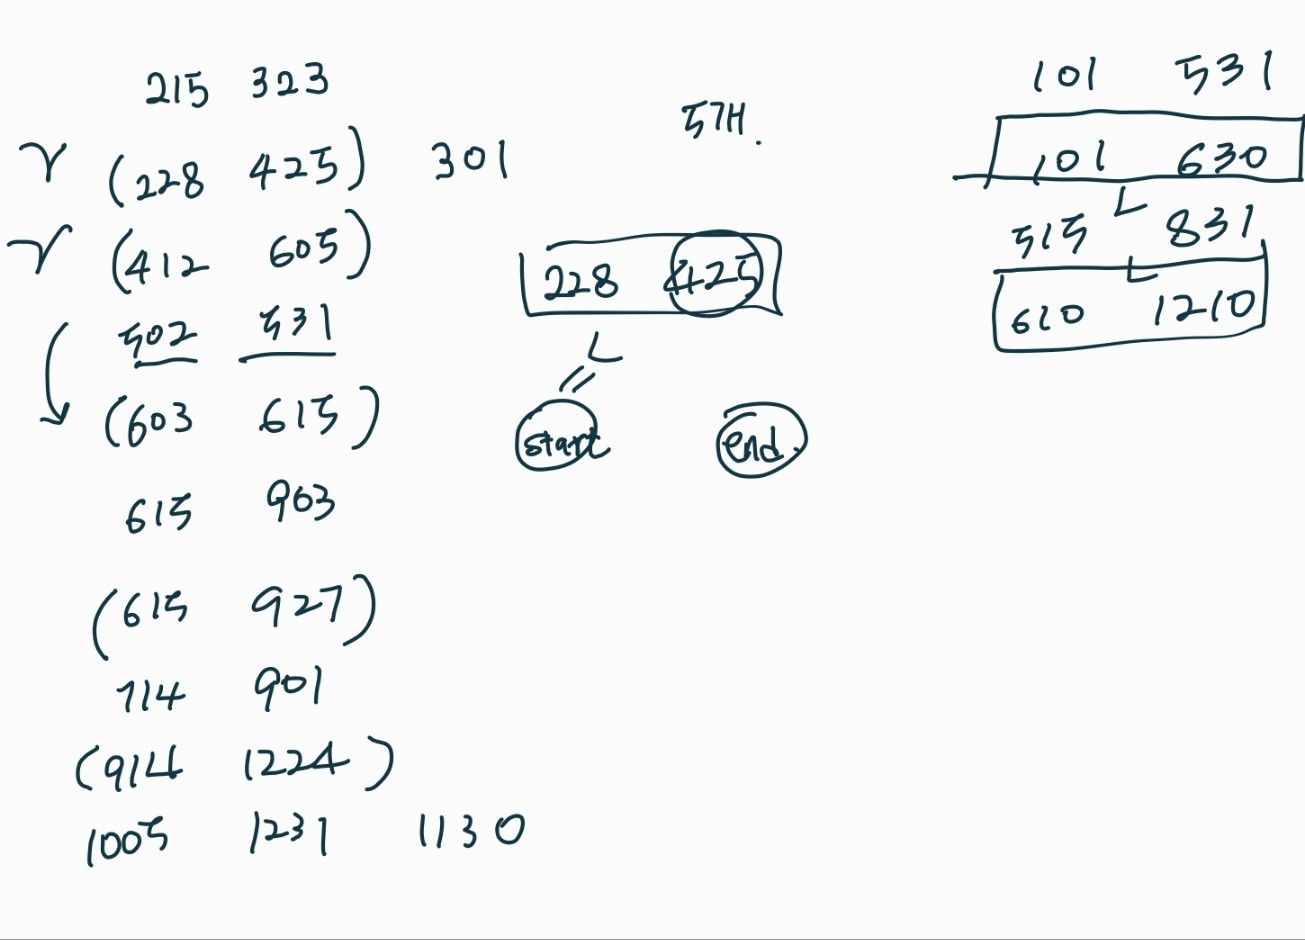 215 323
(228 425) 301
(412 605)
502 531
(603 615)
615 903
(615 927)
714 901
(914 1224)
1005 1231 1130
5개.
228 425
start end.
101 531
101 630
515 831
610 1210